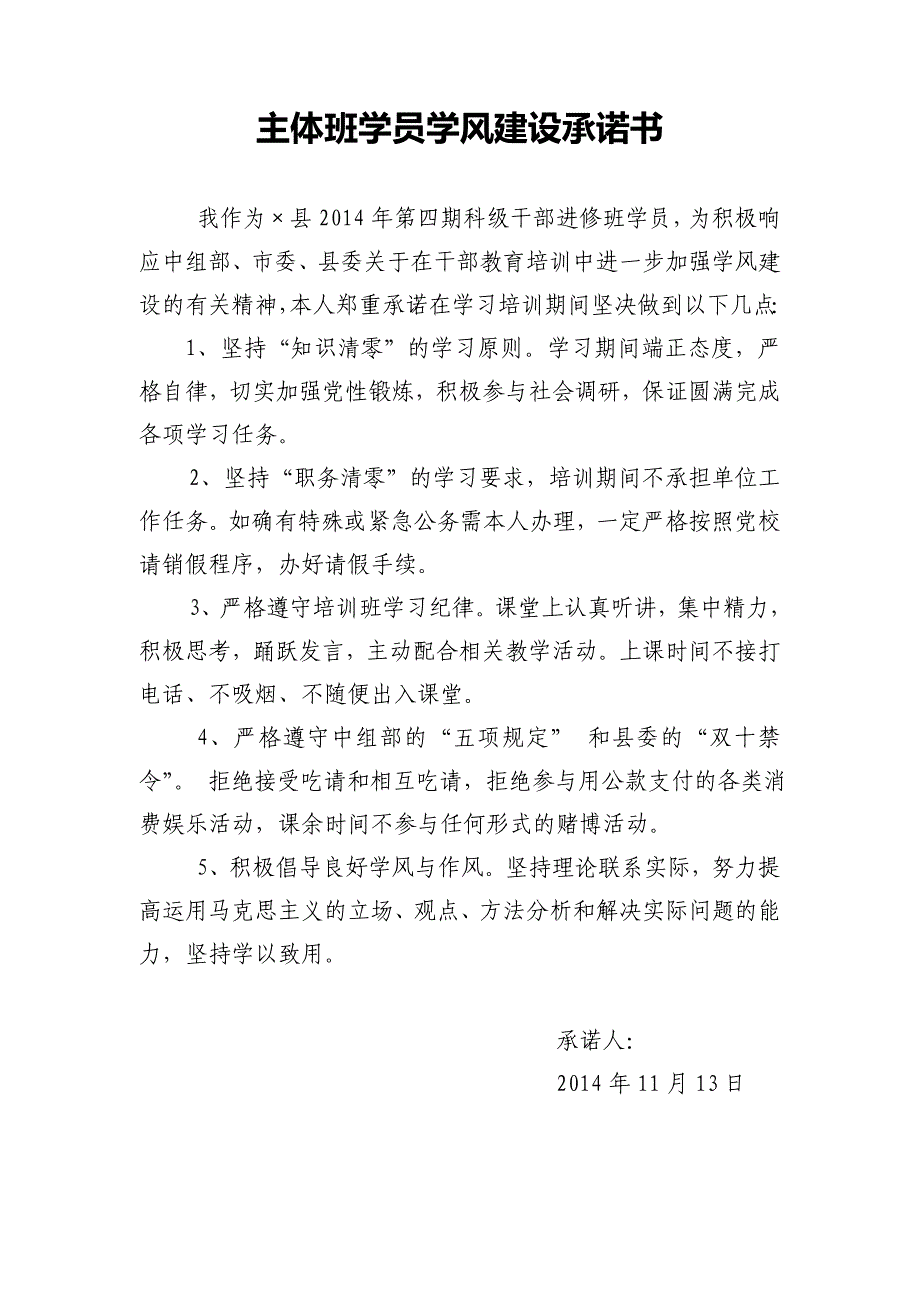 主体班学员学风建设承诺书
我作为×县2014年第四期科级干部进修班学员，为积极响
应中组部、市委、县委关于在干部教育培训中进一步加强学风建
设的有关精神，本人郑重承诺在学习培训期间坚决做到以下几点：
1、坚持“知识清零”的学习原则。学习期间端正态度，严
格自律，切实加强党性锻炼，积极参与社会调研，保证圆满完成
各项学习任务。
2、坚持“职务清零”的学习要求，培训期间不承担单位工
作任务。如确有特殊或紧急公务需本人办理，一定严格按照党校
请销假程序，办好请假手续。
3、严格遵守培训班学习纪律。课堂上认真听讲，集中精力，
积极思考，踊跃发言，主动配合相关教学活动。上课时间不接打
电话、不吸烟、不随便出入课堂。
4、严格遵守中组部的“五项规定” 和县委的“双十禁
令”。 拒绝接受吃请和相互吃请，拒绝参与用公款支付的各类消
费娱乐活动，课余时间不参与任何形式的赌博活动。
5、积极倡导良好学风与作风。坚持理论联系实际，努力提
高运用马克思主义的立场、观点、方法分析和解决实际问题的能
力，坚持学以致用。
承诺人：
2014年11月13日